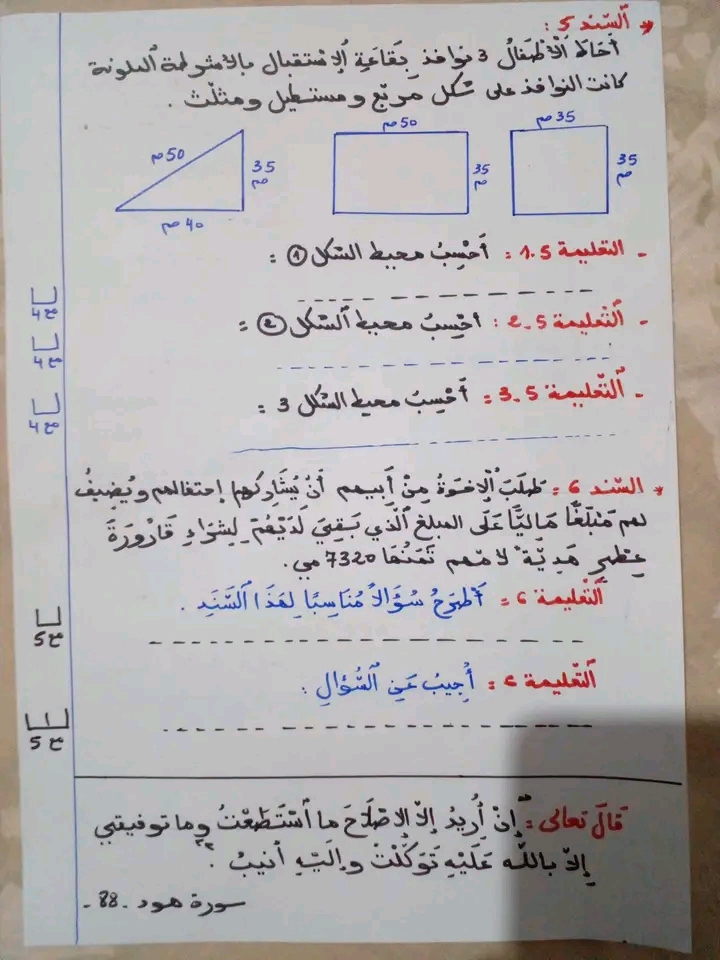 * السّند 5 :
أحاط الأطفالُ 3 نوافذ بِقَاعَةِ الإستقبال بالأشرطة الملونة
كانت النوافذ على شكل مربّع ومستطيل ومثلّث .
50م 35م 40م
50م 35م
35م 35م
- التعليمة 1.5 : أَحْسِبُ محيط الشكل ① :
- التّعليمة 2.5 : أحْسِبُ محيط الشكل ② :
مع4
مع4
- التّعليمة 3.5 : أَحْسِبُ محيط الشكل 3 :
مع4
* السّند 6 : طَلَبَ الإخوَةُ مِنْ أَبِيهم أنْ يُشَارِكَهم إحتفالهم ويُضِيفُ
لهم مَبْلَغًا مَالِيًّا عَلَى المبلغ الّذي بَقِيَ لَدَيْهُمْ لِشِرَاءِ قَارُورَةَ
عِطْرٍ هَدِيّة لأمّهم ثَمَنُهَا 7320 مي.
التّعليمة 6 : أَطْرَحُ سُؤَالاً مُنَاسِبًا لِهَذَا السَّنَدِ .
مع5
التّعليمة 2 : أُجِيبُ عَنِ السُّؤَالِ :
مع5
قالَ تعالى : "إِنْ أُرِيدُ إلاّ الإصْلَاحَ ما اسْتَطَعْتُ وما توفيقي
إلاّ باللّه عَلَيْهِ تَوَكَّلْتُ وإلَيْهِ أنيبُ ."
سورة هود - 88 -